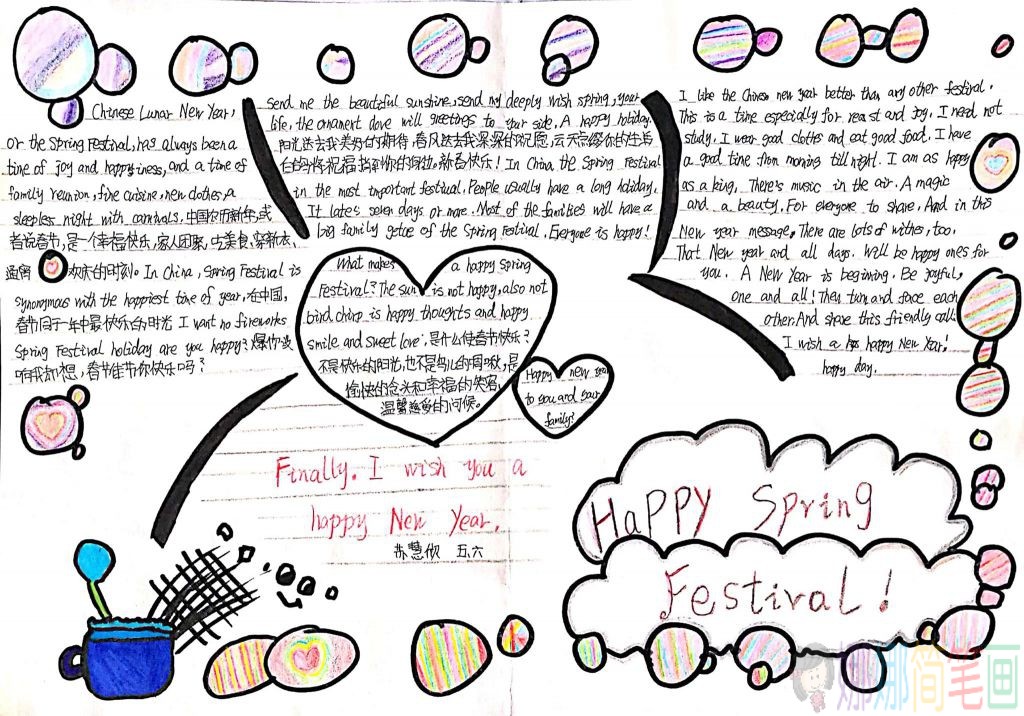 Chinese Lunar New Year,
or the Spring Festival, has always been a
time of joy and happyiness, and a time of
family reunion, fine cuisine, new clothes, a
sleepless night with carnivals. 中国农历新年,或
者说春节,是一个幸福快乐,家人团聚,吃美食,穿新衣、
通宵 欢庆的时刻。In China, Spring Festival is
synonymous with the happiest time of year, 在中国,
春节同于一年中最快乐的时光 I want no fireworks
Spring Festival holiday are you happy? 爆你没
响我却想,春节佳节你快乐吗?
Send me the beautiful sunshine, send my deeply wish spring, your
life, the ornament dove will greetings to your side. A happy holiday.
阳光送去我美好的期待 春风送去我深深的祝愿,
新春快乐! In China, the Spring Festival
in the most important festival. People usually have a long holiday.
It lates seven days or more. Most of the families will have a
big family getoe of the Spring Festival. Everyone is happy!
I like the Chinese new year better than any other festival.
This is a time especially for rearst and joy. I need not
study. I wear good cloths and eat good food. I have
a good time from morning till night. I am as happy
as a king. There's music in the air. A magic
and a beauty. For everyone to share. And in this
New year message, There are lots of withes, too.
That New year and all days. Will be happy ones for
you. A New Year is beginning. Be joyful,
one and all! They turn and face each
other. And share this friendly call:
I wish a has happy New Year!
happy day.
What makes a happy Spring
Festival? The sun is not happy, also not
bird chirp is happy thoughts and happy
smile and sweet love; 是什么使春节快乐?
不是快乐的阳光,也不是鸟儿的啁啾,是
愉快的念头和幸福的笑容,
温馨慈爱的问候。
Happy new year
to you and your
family!
Finally. I wish you a
happy New Year.
五.六
HaPPy Spring
Festival!
娜娜简笔画